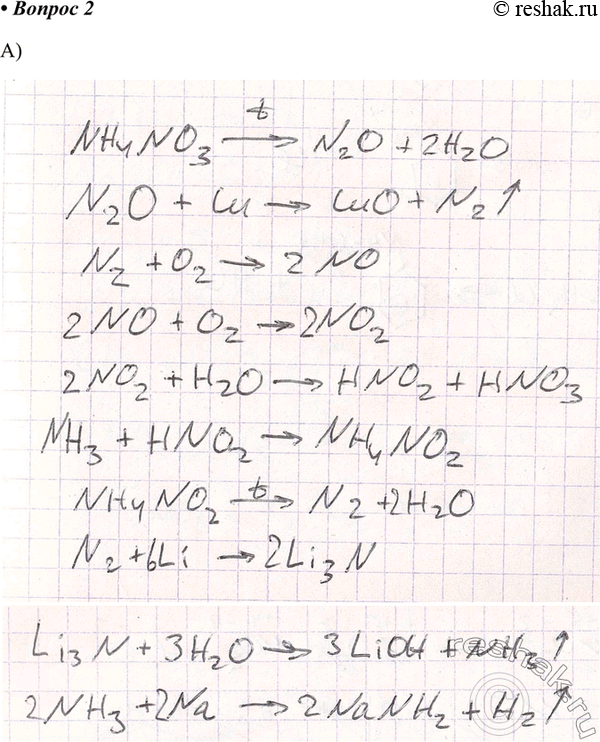 • Вопрос 2
© reshak.ru
А)
NH₄NO₃ —t→ N₂O + 2H₂O
N₂O + Cu → CuO + N₂↑
N₂ + O₂ → 2NO
2NO + O₂ → 2NO₂
2NO₂ + H₂O → HNO₂ + HNO₃
NH₃ + HNO₂ → NH₄NO₂
NH₄NO₂ —t→ N₂ + 2H₂O
N₂ + 6Li → 2Li₃N
Li₃N + 3H₂O → 3LiOH + NH₃↑
2NH₃ + 2Na → 2NaNH₂ + H₂↑
reshak.ru